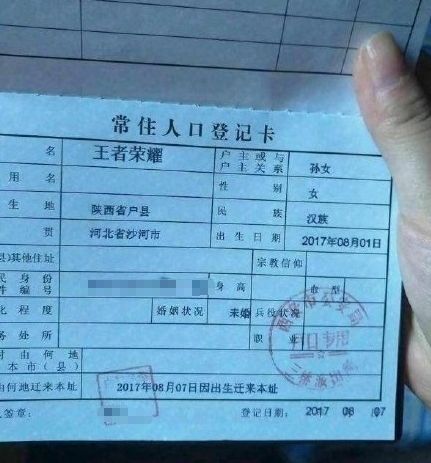 常住人口登记卡
名 王者荣耀 户主或与户主关系 孙女
用名 性别 女
生地 陕西省户县 民族 汉族
贯 河北省沙河市 出生日期 2017年08月01日
县)其他住址 宗教信仰
民身份
件编号 身高 血型
化程度 婚姻状况 未婚 兵役状况
务处所 职业
时由何地
本市(县)
由何地迁来本址 2017年08月07日因出生迁来本址
人签章: 登记日期: 2017 08 07